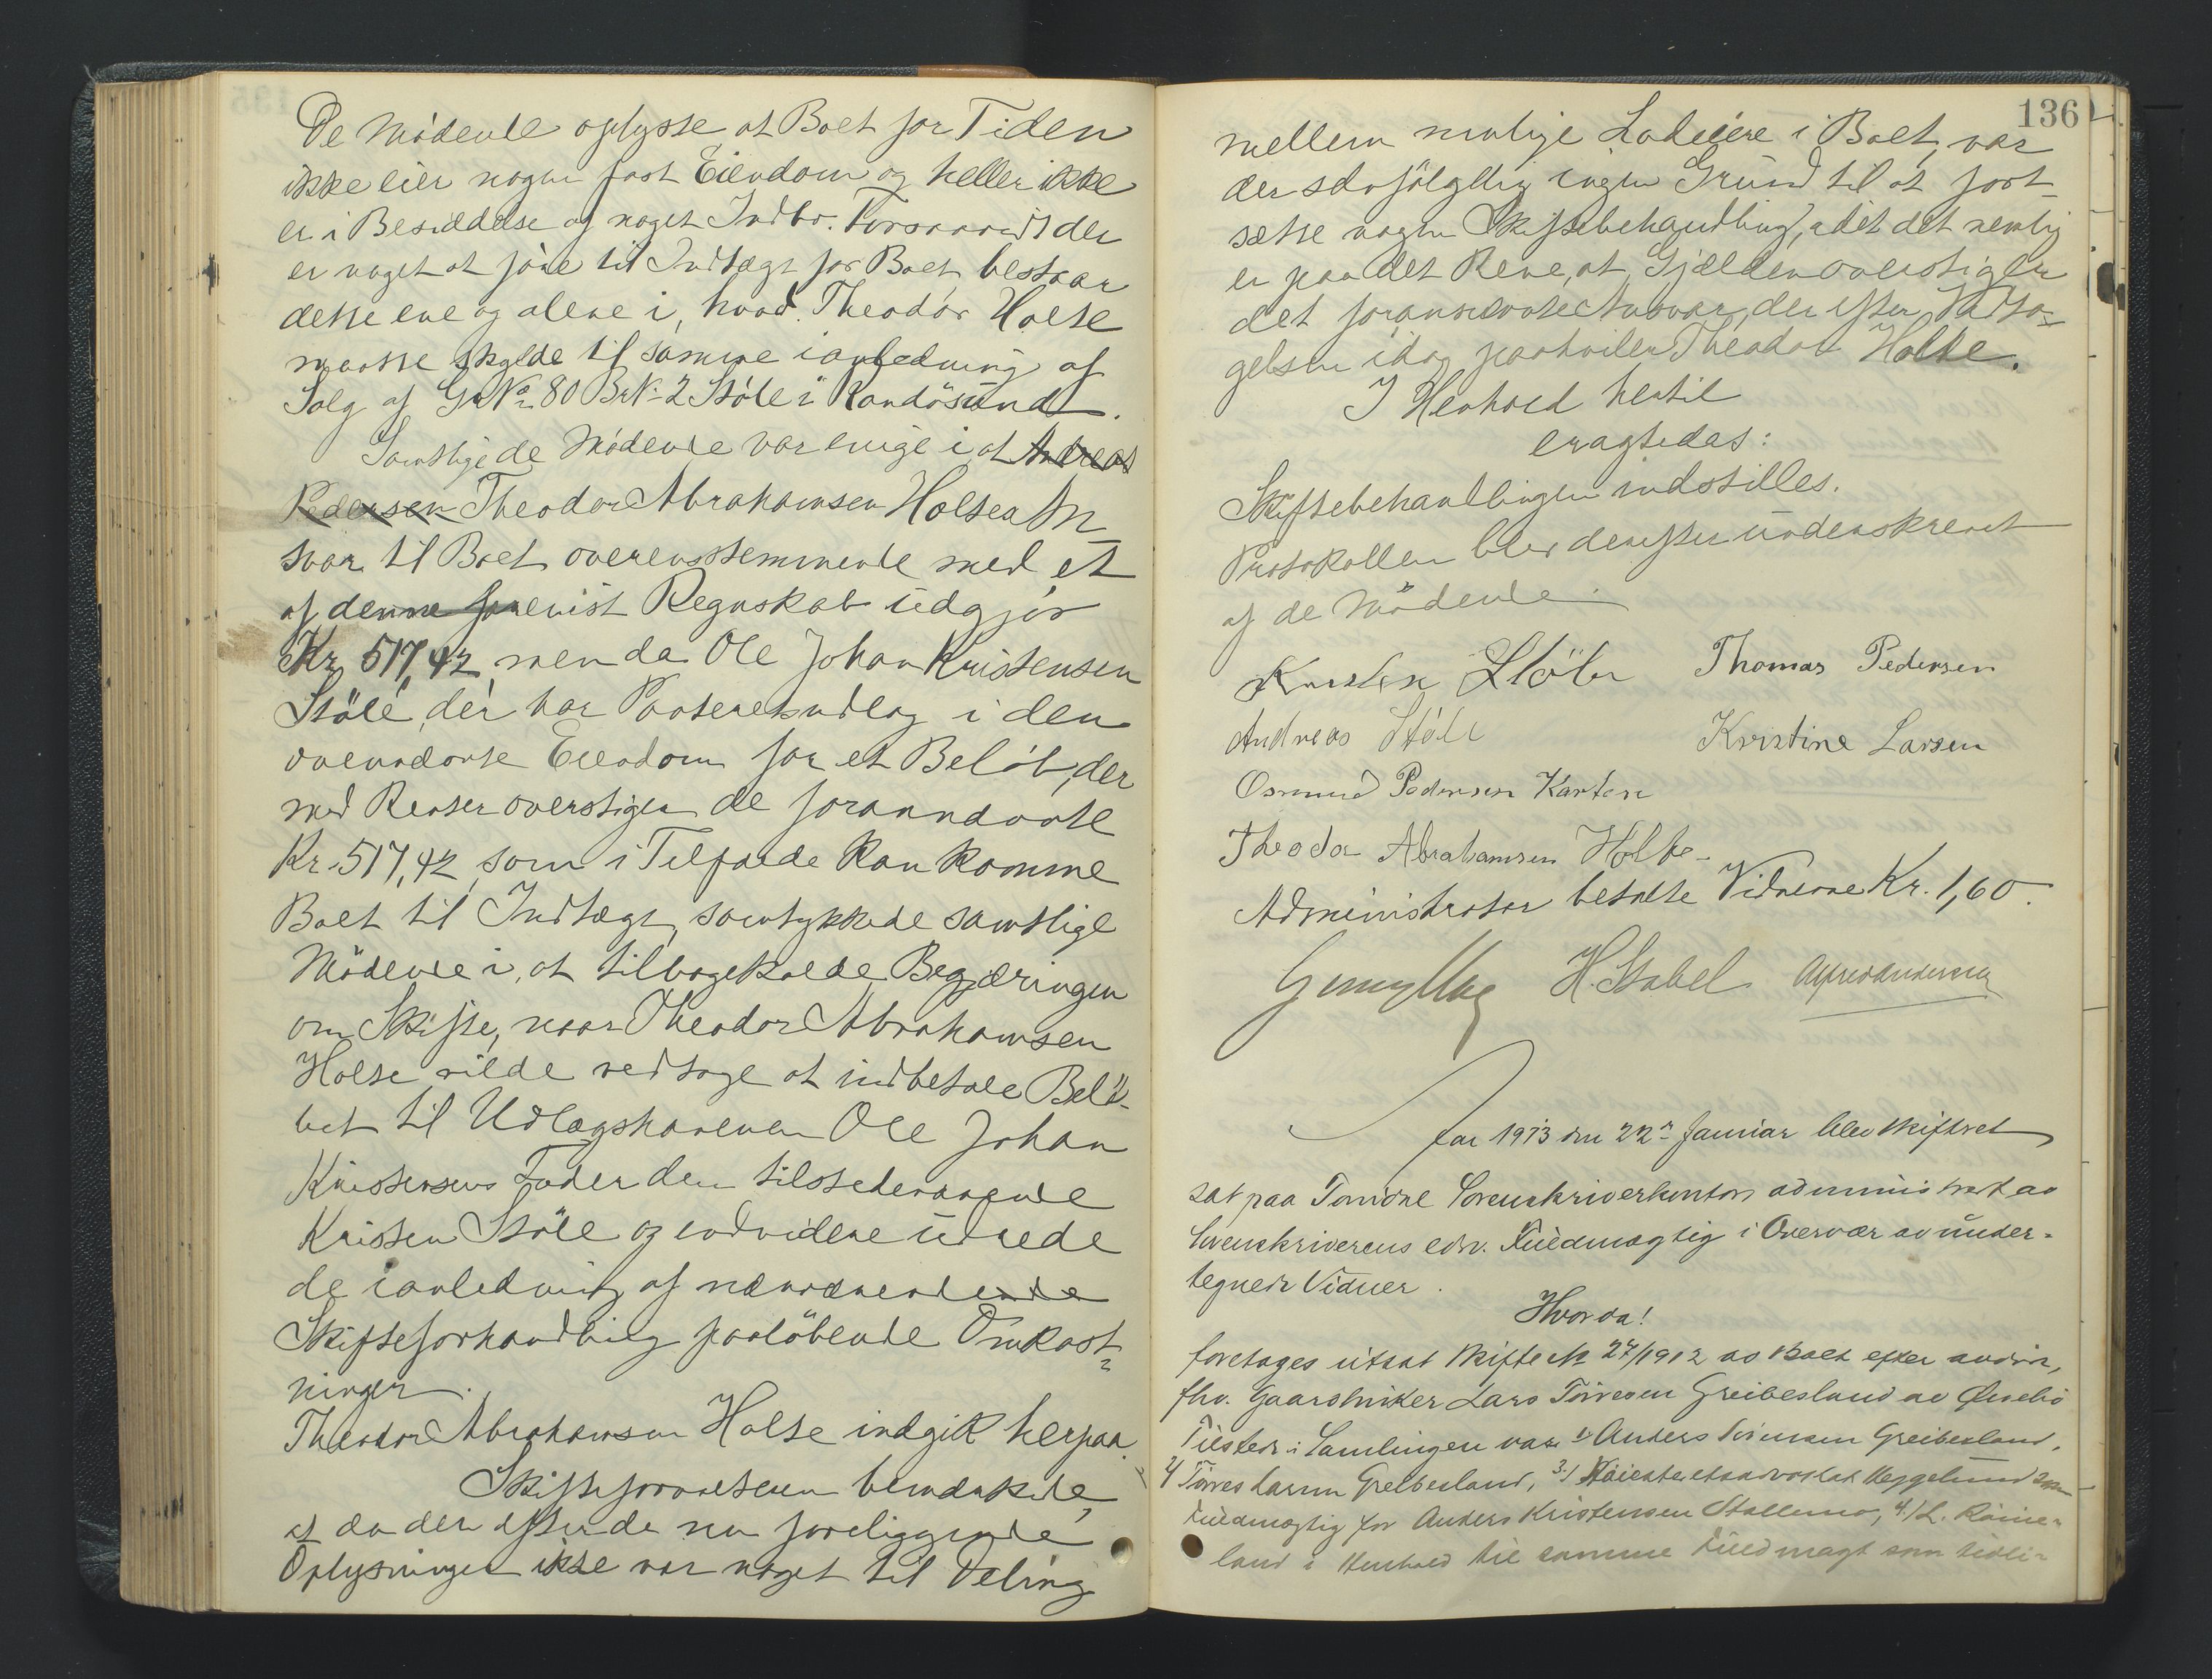 De Mödende oplyste at Boet for Tiden
ikke eier nogen fast Eiendom og heller ikke
er i Besiddelse af noget Indbo. Forsaavidt der
er noget at före til Indtægt for Boet, bestaar
dette ene og alene i, hvad Theodor Holte
maatte skylde til samme i anledning af
Salg af G.No. 80 B.N. 2 Støle i Randösund.
Samtlige de Mödende var enige i, at Andreas
Pedersen Theodor Abrahamsen Holtes An
svar til Boet overensstemmende med et
af denne fremvist Regnskab udgjör
Kr. 517,42, men da Ole Johan Kristensen
Støle, der har Panteretsudlæg i den
ovennævnte Eiendom for et Belöb, der
med Renter overstiger de forannævnte
Kr. 517,42, som i Tilfælde kan komme
Boet til Indtægt, samtykkede samtlige
Mödende i, at tilbagekalde Begjæringen
om Skifte, naar Theodor Abrahamsen
Holte vilde vedtage at indbetale Belö-
bet til Udlægshaveren Ole Johan
Kristensens Fader den tilstedeværende
Kristen Støle og endvidere udrede
de i anledning af nærværende
Skifteforhandling paalöbende Omkost=
ninger.
Theodor Abrahamsen Holte indgik herpaa.
Skifteforvalteren bemærkede,
at da der efter de nu foreliggende
Oplysninger ikke var noget til Deling
136
mellem mulige Lodeiere i Boet, var
der selvfölgelig ingen Grund til at fort
sætte nogen Skiftebehandling, idet det nemlig
er paa det Rene, at Gjælden overstiger
det forannævnte Ansvar, der efter Vedta-
gelsen idag paahviler Theodor Holte.
I Henhold hertil
eragtedes:
Skiftebehandlingen indstilles.
Protokollen blev derefter underskrevet
af de Mödende.
Kristen Støle Thomas Pedersen
Andreas Støle Kristine Larsen
Osmund Pedersen Karten
Theodor Abrahamsen Holte
Administrator betalte Vidnerne Kr. 1,60.
H. Stabel Alfred Andersen
Aar 1913 den 22de Januar blev skifteret
sat paa Torridal Sorenskriverkontor administrert av
Sorenskriverens edsv. Fuldmægtig i Overvær av under-
tegnede Vidner.
Hvorda!
foretages utsat Skifte No 27/1912 av Boet efter avdöde,
fhv. Gaardbruker Lars Torresen Greibesland av Øvrebö
Tilstede i Samlingen var 1/ Anders Torresen Greibesland,
2/ Torres Larsen Greibesland, 3./ Höiesteretsadvokat Heggelund som
fuldmægtig for Anders Kristensen Stallemo, 4./ L. Röine-
land i Henhold til samme fuldmagt som tidli-